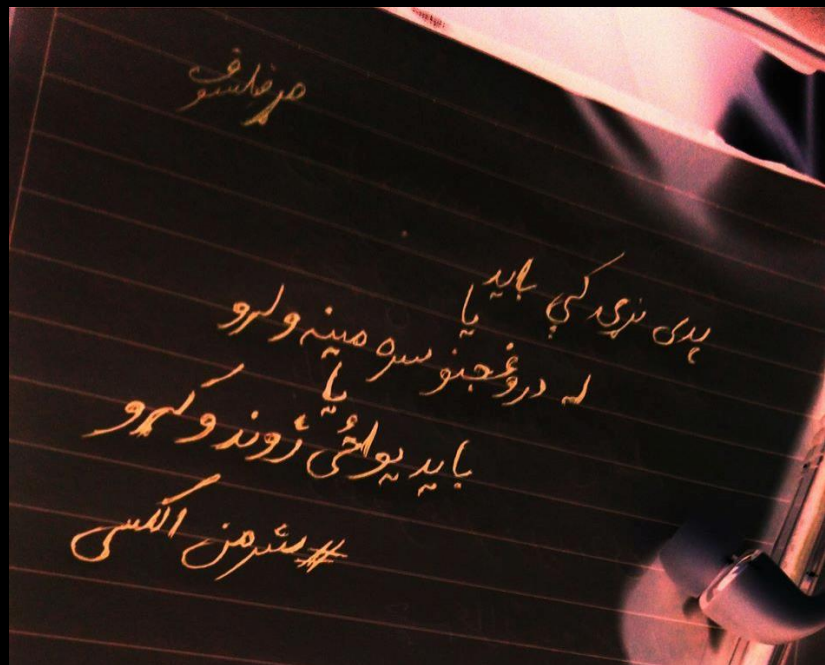 پدې نړۍ کې باید
یا
له دروغجنو سره مینه ولرو
یا
باید یواځې ژوند وکړو
#شرمن الکسی